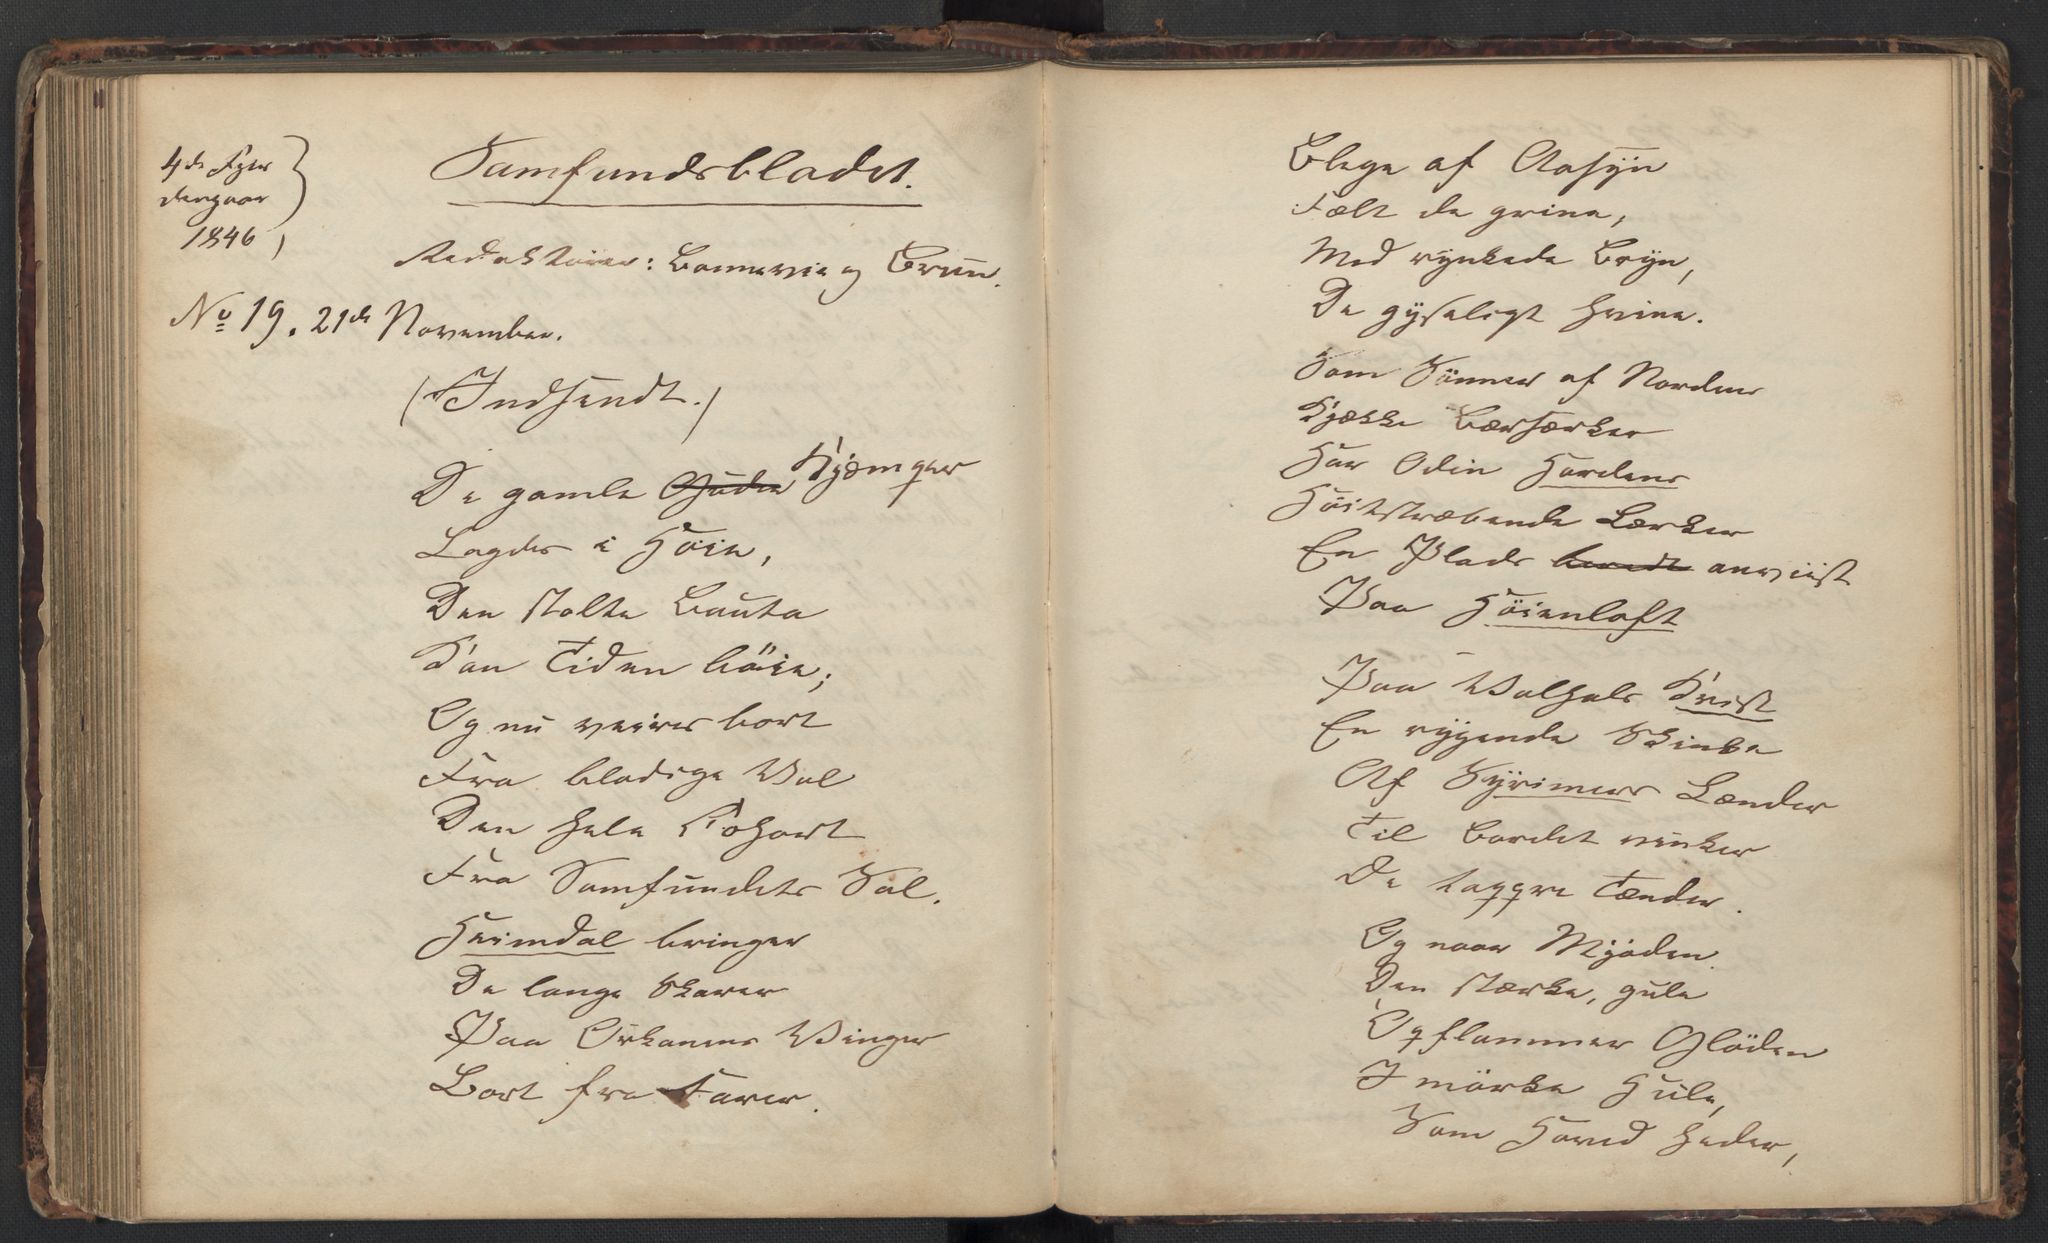 4de Fjer
dingaar
1846,
Samfundsbladet.
Redaktører: Bonnevie og Brun.
No 19. 21de November.
(Indsendt.)
De gamle Guder Kjæmper
Lagdes i Høie,
Den stolte Bauta
Kan Tiden bøie;
Og nu veires bort
Fra blodige Val
Den hele Kohort
Fra Samfundets Sal.
Heimdal bringer
De lange Skarer
Paa Orkanens Vinger
Bort fra Farer.
Blege af Aasyn
Fælt de grine,
Med rynkede Bryn,
De gyseligt hvine.
Som Sønner af Norden
Kjække Bærsærker
Har Odin Hordens
Høitstræbende Lærker
En Plads beredt anviist
Paa Høienloft
Paa Valhals Kvist
En rygende Skinke
Af Syrimers Lænder
Til Bordet vinker
De tappre Tænder.
Og naar Mjøden
Den stærke, gule
Opflammer Gløden
I mörke Hule,
Som Hoved heder,